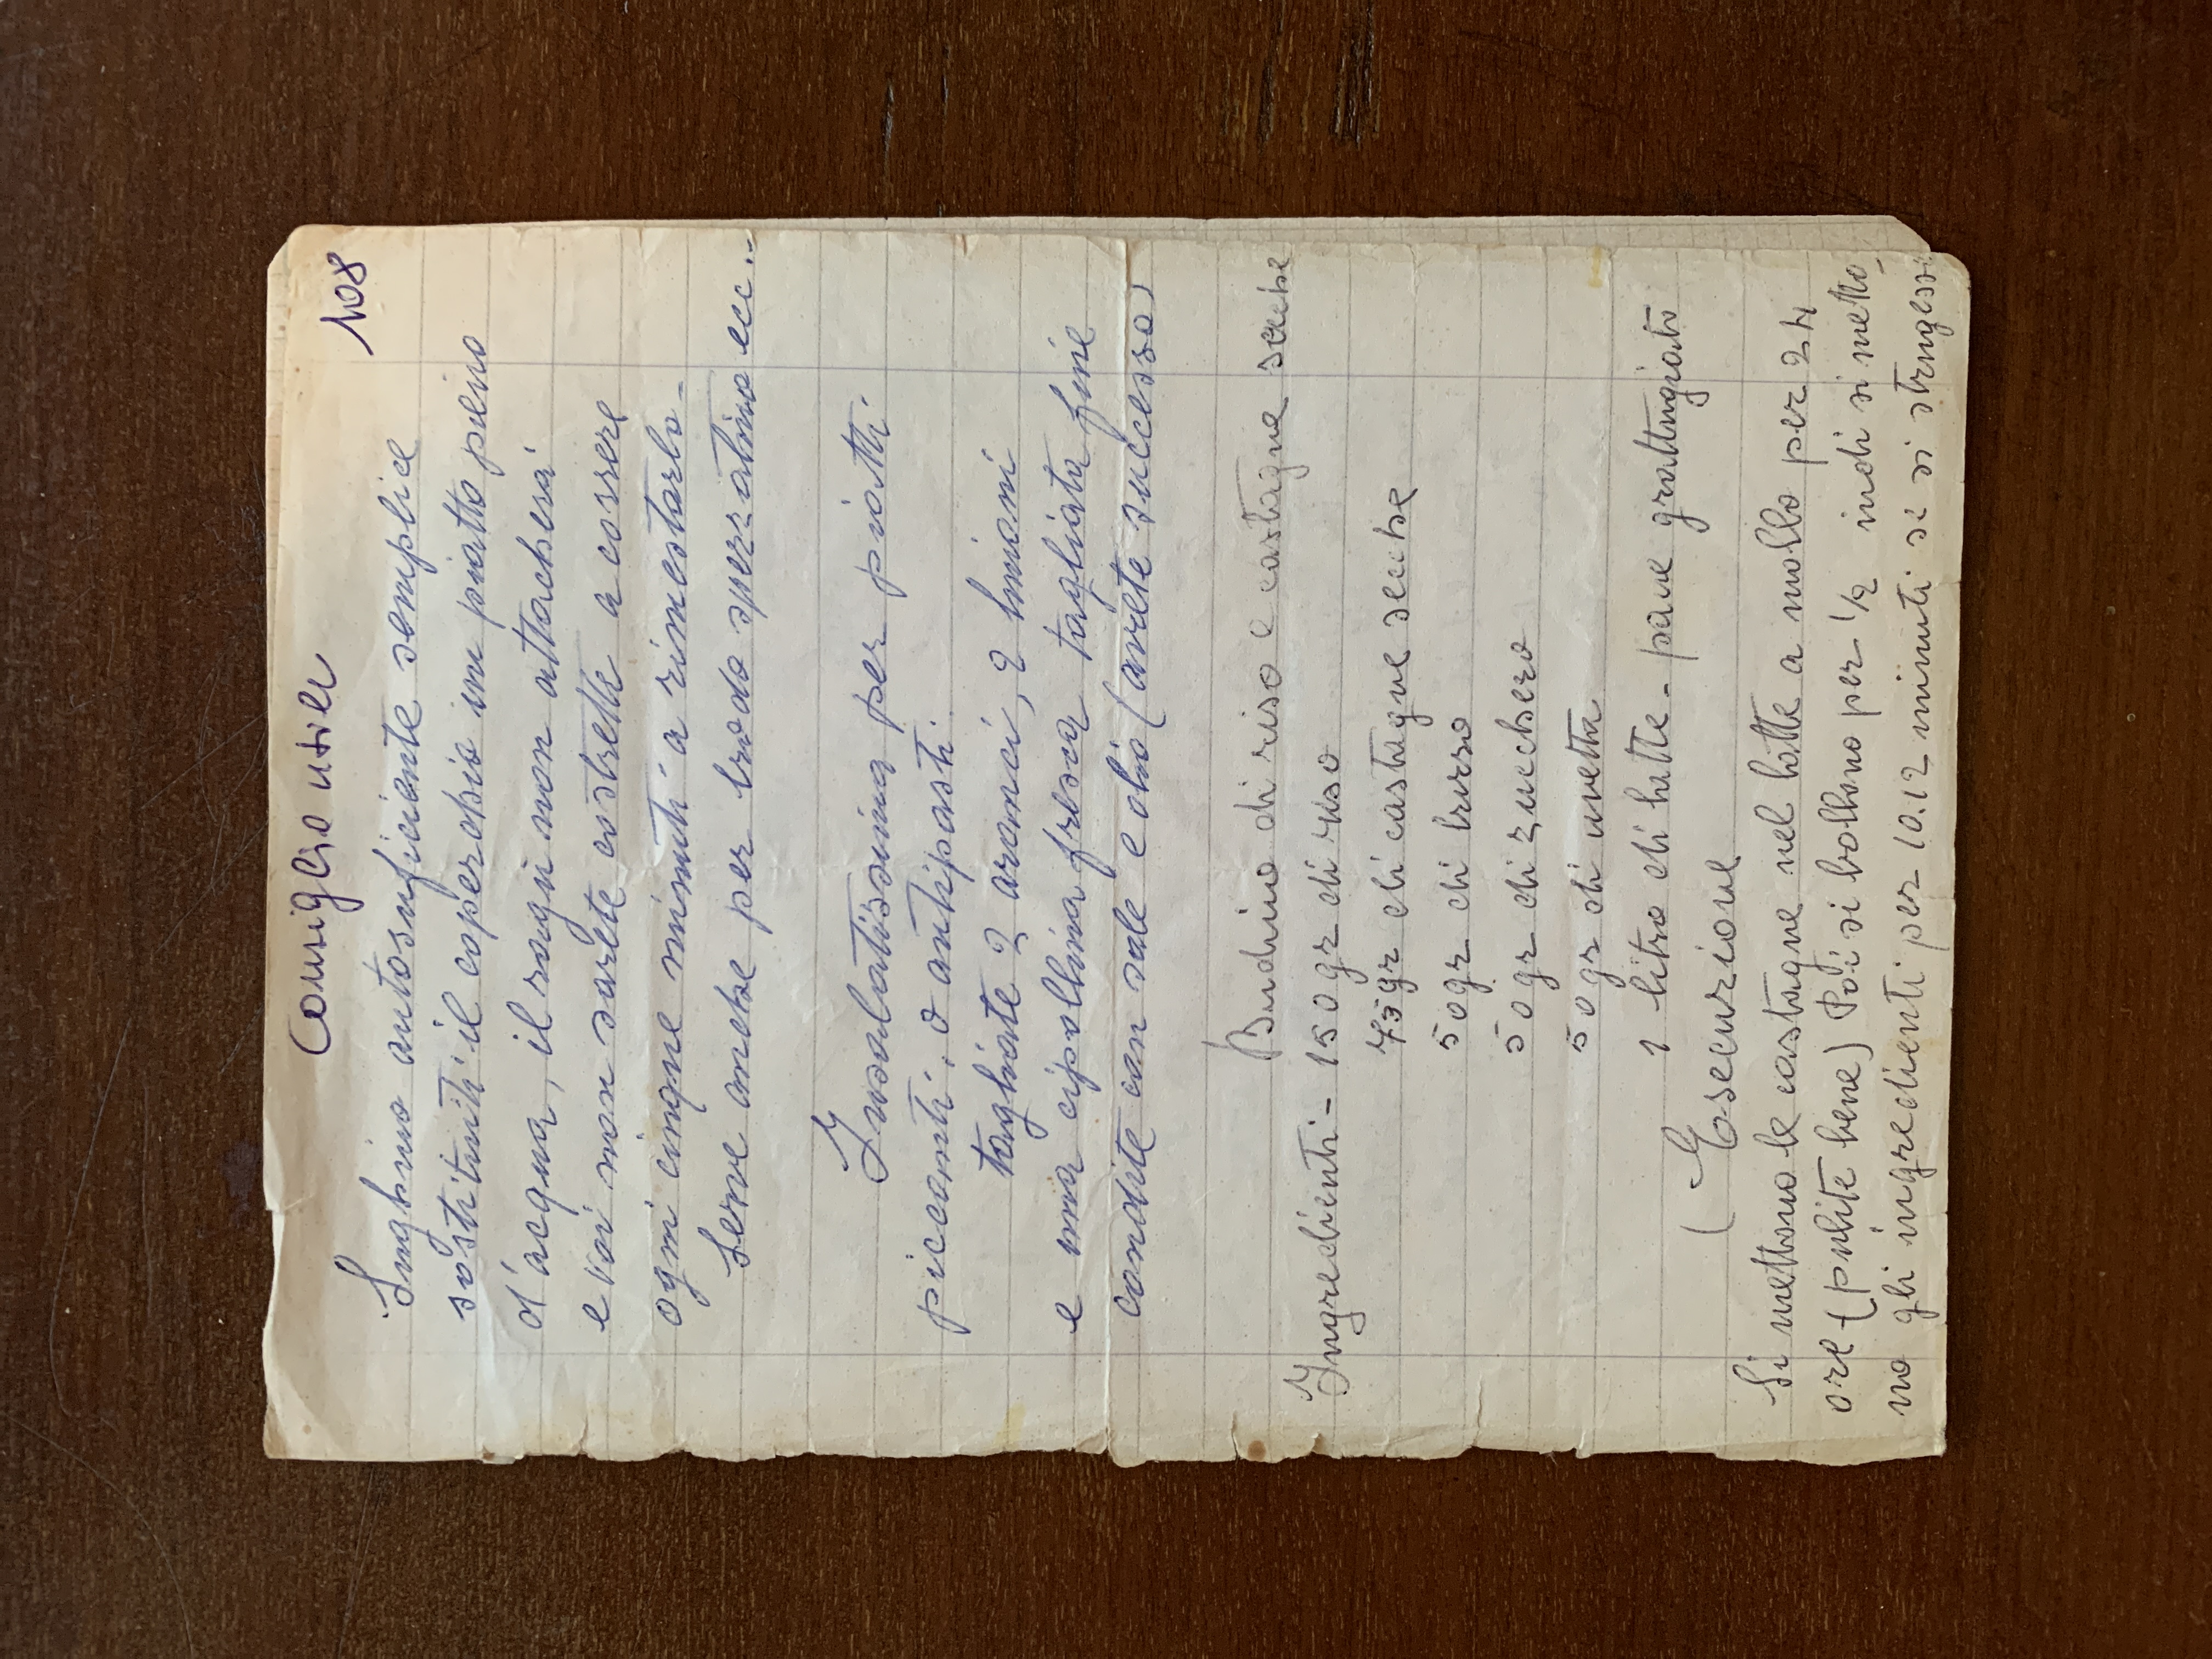 Consiglio utile
108
Sughino autosuficiente semplice
sostituiti il coperchio un piatto pieno
d'acqua, il ragù non attacherà
e voi non sarete costrette a correre
ogni cinque minuti a rimestarlo-
Serve anche per brodo spezzatino ecc..
Insalatissima per piatti
piccanti, o antipasti.
tagliate 2 aranci, 2 limioni
e una cipollina fresca tagliata fine
condite con sale e olio (avrete successo)
Budino di riso e castagne secche
Ingredienti - 150 gr di riso
75 gr di castagne secche
50 gr di burro
50 gr di zucchero
50 gr di uvetta
1 litro di latte - pane grattugiato
( Esecuzione
Si mettono le castagne nel latte a mollo per 24
ore (pulite bene) Poi si bollono per 1/2 indi si metto_
no gli ingredienti per 10.12 minuti se si strugesse